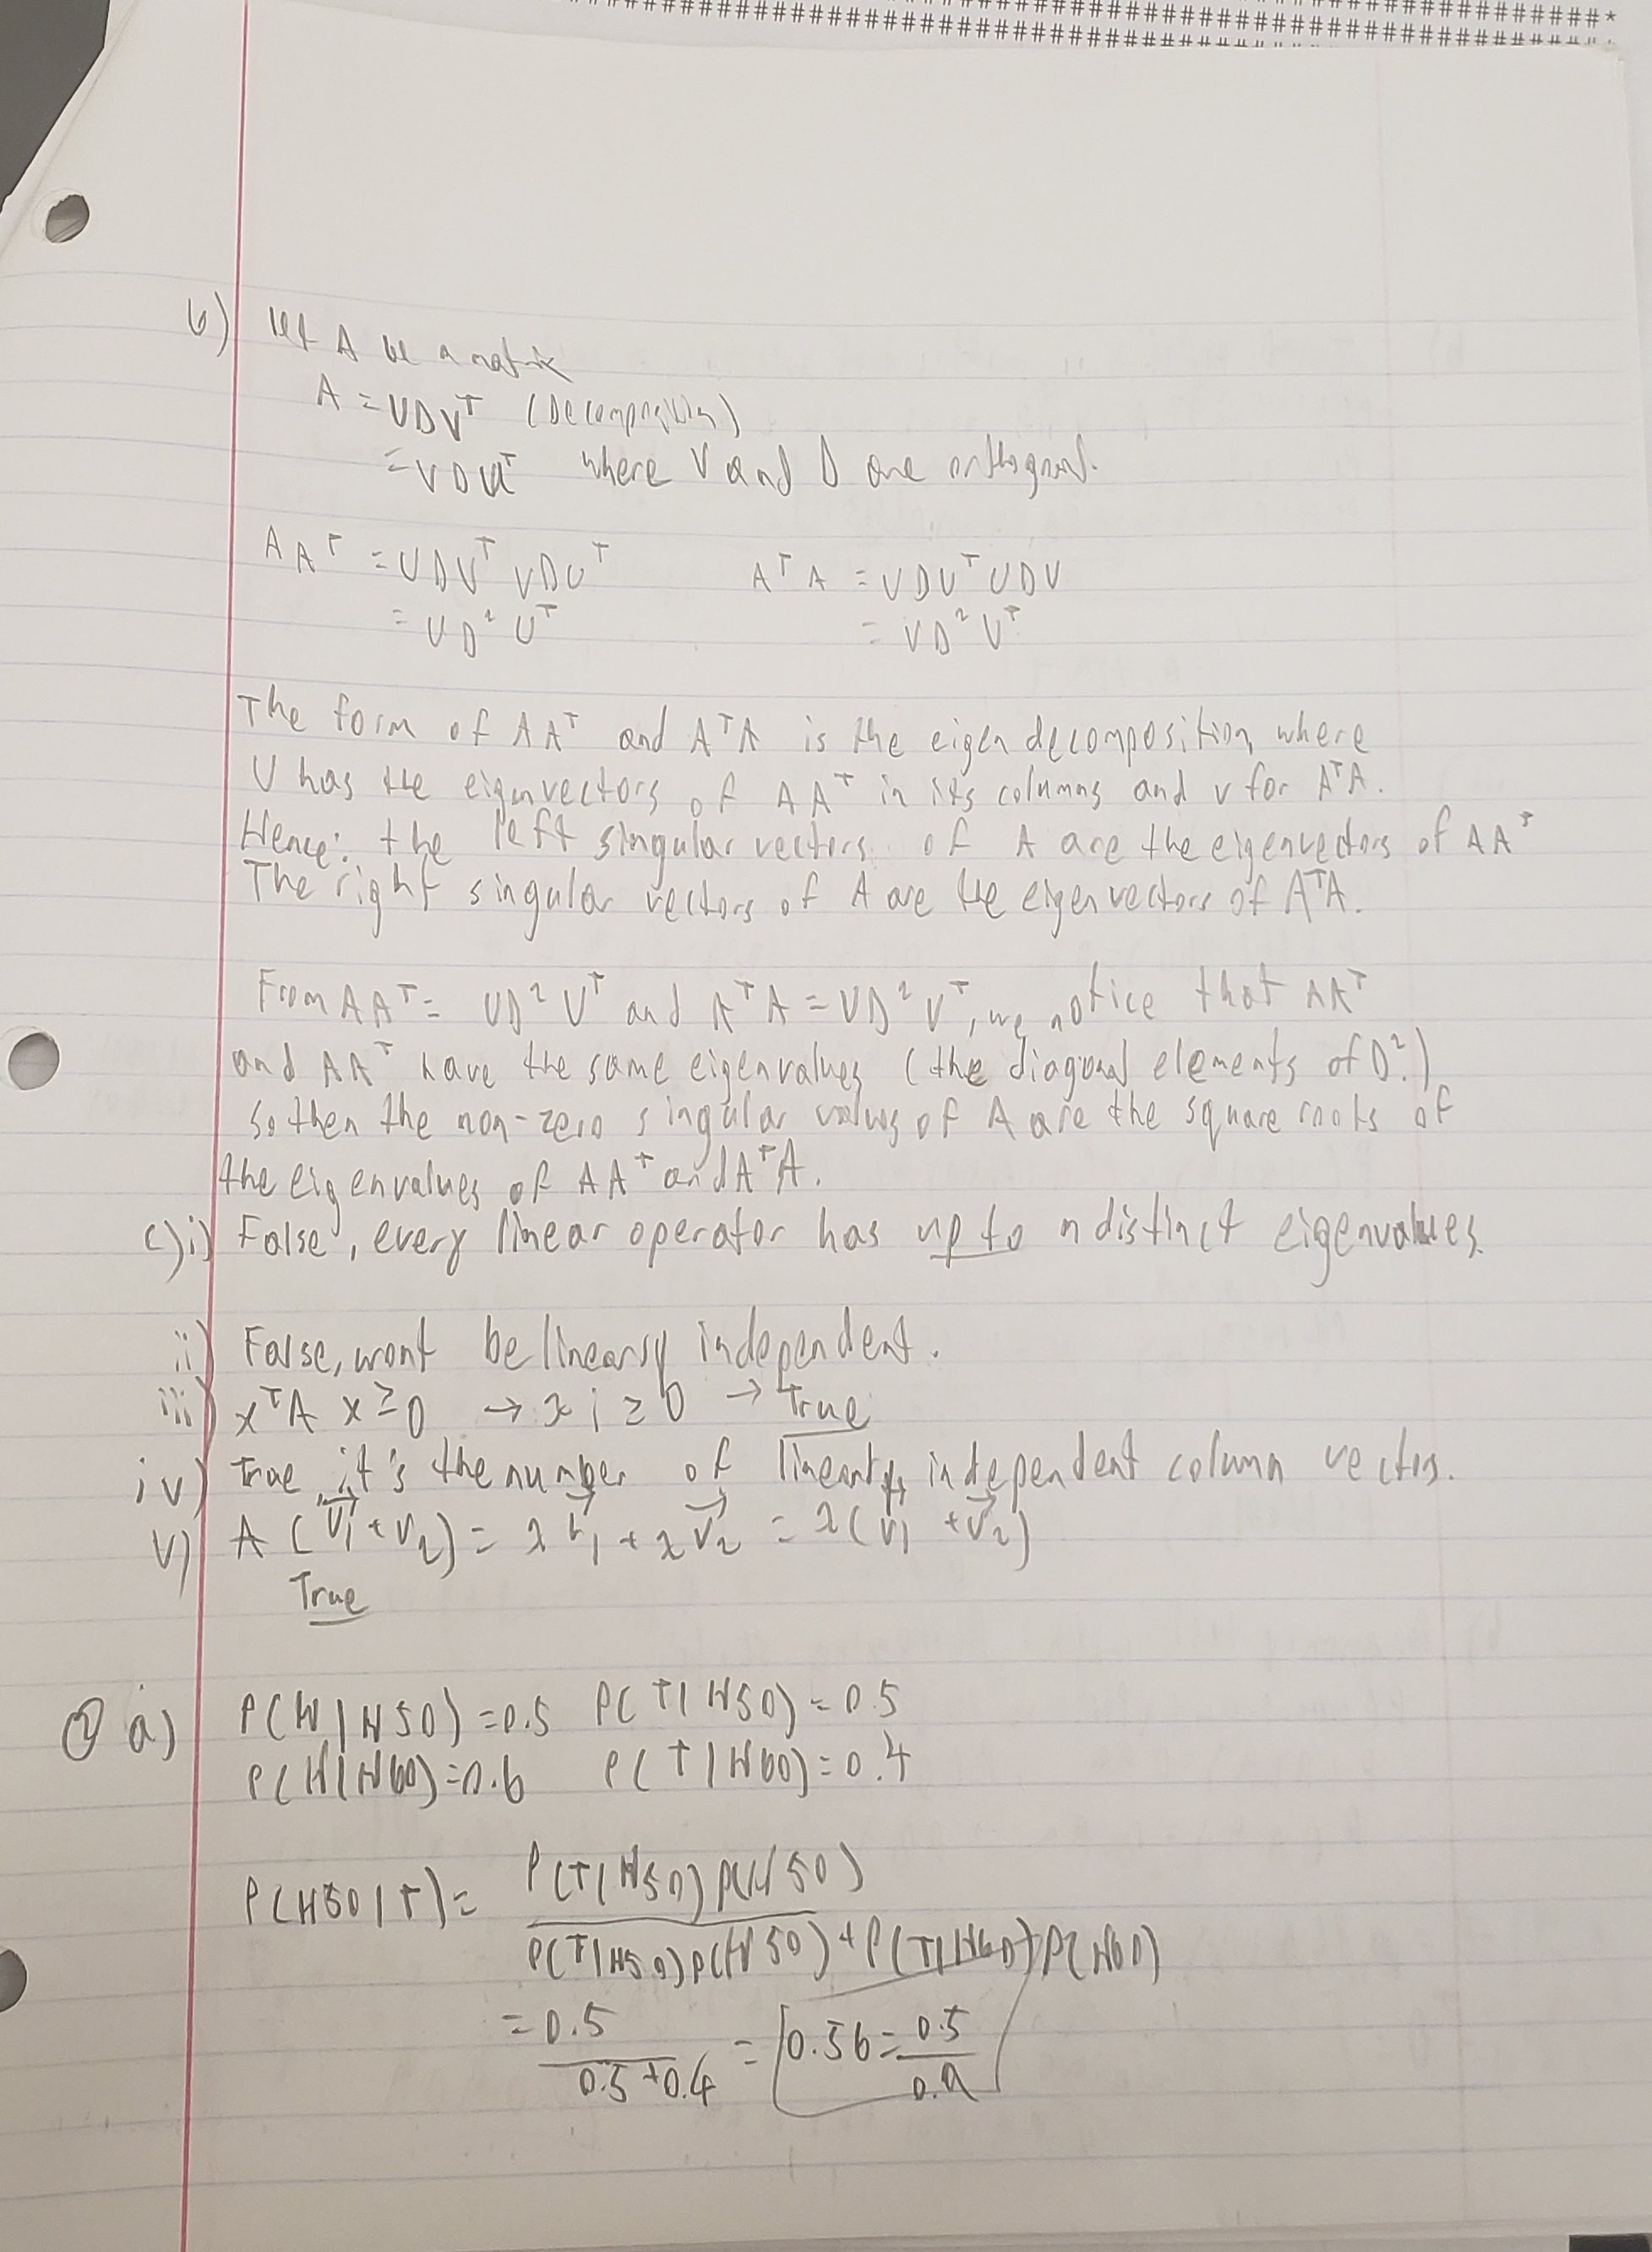 ###########################################*
###########################################
b) let A be a matrix
A = UDV^T (Decomposition)
= VDU^T where V and D are orthogonal.
AA^T = UDV^T VDU^T    A^T A = VDU^T UDV
= UD²U^T    = VD²V^T
The form of AA^T and A^TA is the eigen decomposition, where
U has the eigenvectors of AA^T in its columns and v for A^TA.
Hence: the left singular vectors of A are the eigenvectors of AA^T
The right singular vectors of A are the eigenvectors of A^TA.
From AA^T = UD²U^T and A^TA = VD²V^T, we notice that AA^T
and AA^T have the same eigenvalues (the diagonal elements of D².)
so then the non-zero singular values of A are the square roots of
the eigenvalues of AA^T and A^TA.
c) i) False, every linear operator has up to n distinct eigenvalues.
ii) False, wont be linearly independent.
iii) x^T A x ≥ 0 → λi ≥ 0 → True
iv) True, it's the number of linearly independent column vectors.
v) A (v1 + v2) = λv1 + λv2 = λ(v1 + v2)
True
② a) P(H|H50) = 0.5 P(T|H50) = 0.5
P(H|H60) = 0.6 P(T|H60) = 0.4
P(H50|T) = P(T|H50) P(H50)
P(T|H50) P(H50) + P(T|H60) P(H60)
= 0.5 / 0.5 + 0.4 = 0.56 = 0.5 / 0.9